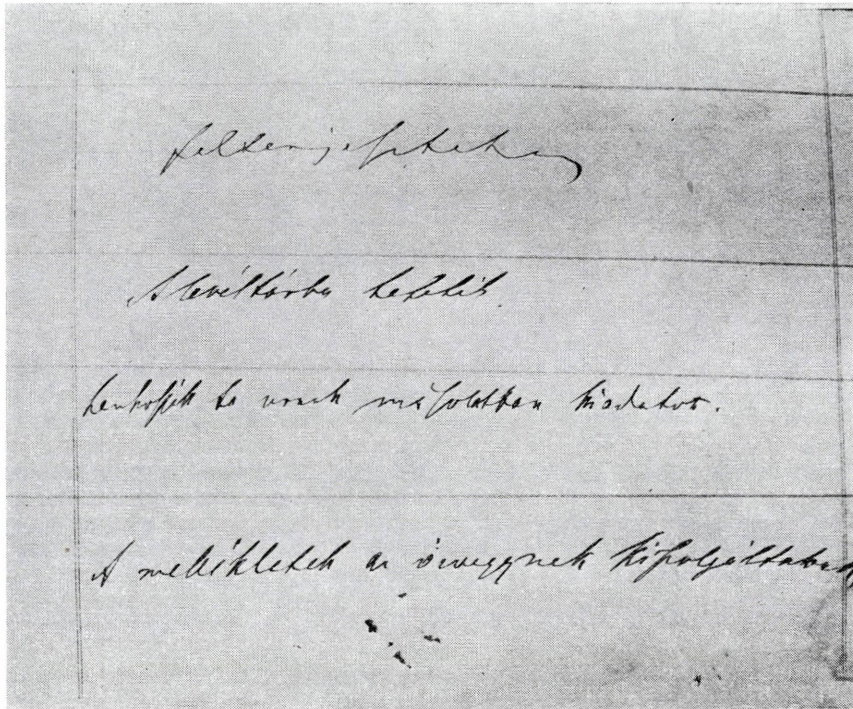 felterjesztetik
A levéltárba tétetik
úrnak másolatban kiadatott.
A mellékletek az özvegynek kiszolgáltattak